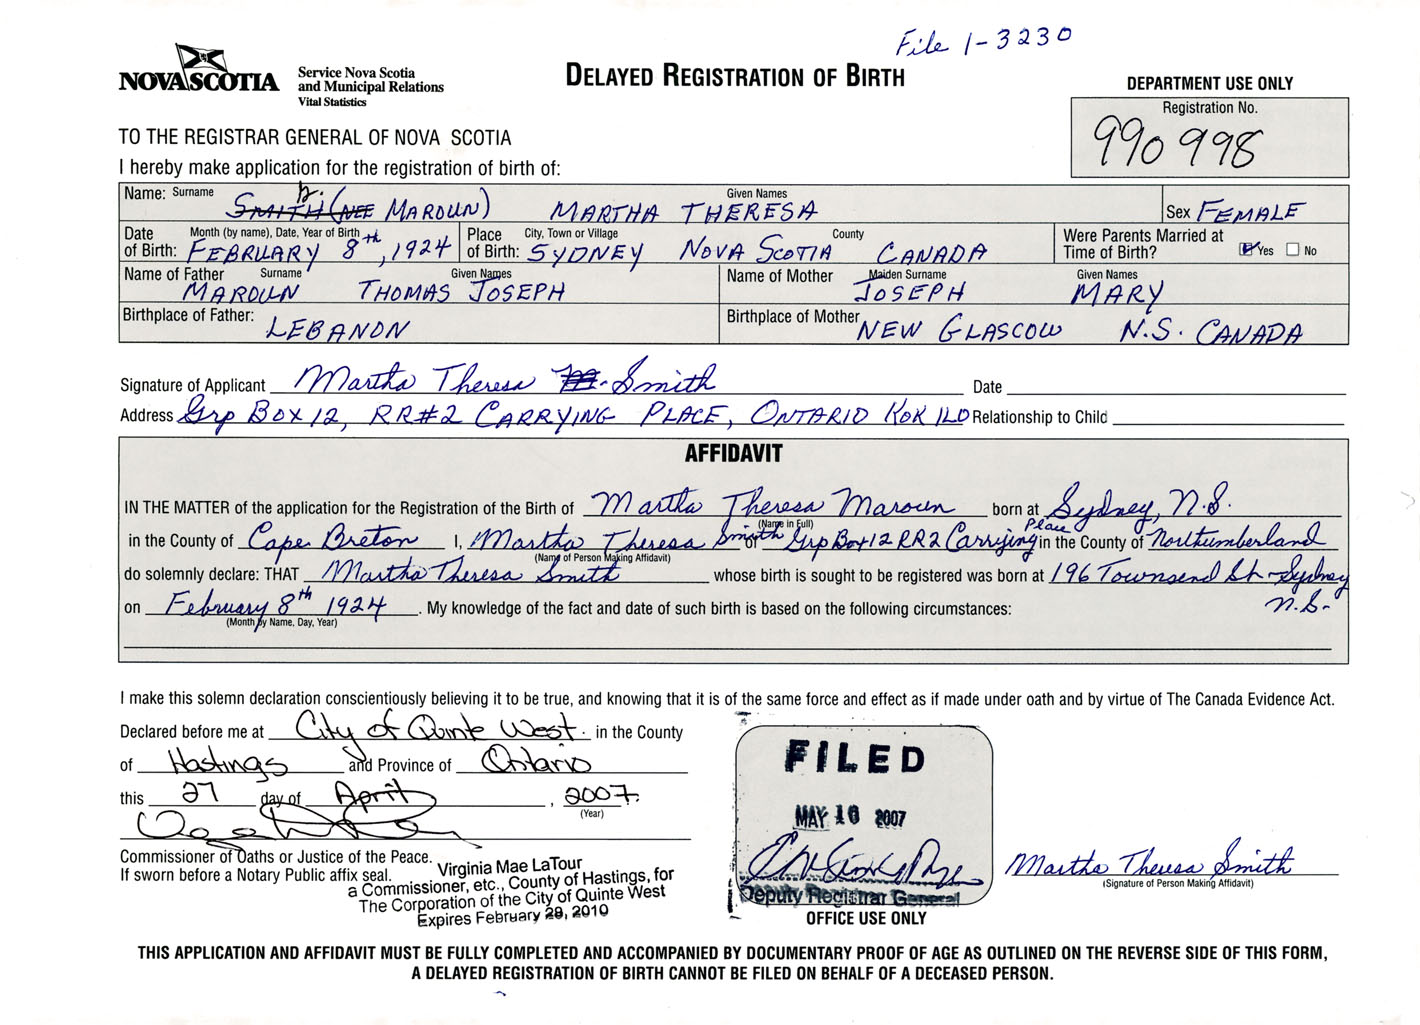 File 1-3230
NOVA SCOTIA
Service Nova Scotia
and Municipal Relations
Vital Statistics
DELAYED REGISTRATION OF BIRTH
DEPARTMENT USE ONLY
Registration No.
990 998
TO THE REGISTRAR GENERAL OF NOVA SCOTIA
I hereby make application for the registration of birth of:
Name: Surname SMITH (NEE MAROUN) Given Names MARTHA THERESA Sex FEMALE
Date of Birth: Month (by name), Date, Year of Birth FEBRUARY 8th, 1924 Place of Birth: City, Town or Village SYDNEY NOVA SCOTIA County CANADA Were Parents Married at Time of Birth? Yes No
Name of Father Surname MAROUN Given Names THOMAS JOSEPH Name of Mother Maiden Surname JOSEPH Given Names MARY
Birthplace of Father: LEBANON Birthplace of Mother NEW GLASCOW N.S. CANADA
Signature of Applicant Martha Theresa Smith Date
Address Grp Box 12, RR#2 CARRYING PLACE, ONTARIO K0K 1L0 Relationship to Child
AFFIDAVIT
IN THE MATTER of the application for the Registration of the Birth of Martha Theresa Maroun born at Sydney, N.S.
(Name in Full)
in the County of Cape Breton I, Martha Theresa Smith of Grp Box 12 RR2 Carrying Place in the County of Northumberland
(Name of Person Making Affidavit)
do solemnly declare: THAT Martha Theresa Smith whose birth is sought to be registered was born at 196 Townsend St - Sydney N.S.
on February 8th 1924. My knowledge of the fact and date of such birth is based on the following circumstances:
(Month by Name, Day, Year)
I make this solemn declaration conscientiously believing it to be true, and knowing that it is of the same force and effect as if made under oath and by virtue of The Canada Evidence Act.
Declared before me at City of Quinte West. in the County
of Hastings and Province of Ontario
this 27 day of April, 2007.
(Year)
Commissioner of Oaths or Justice of the Peace.
If sworn before a Notary Public affix seal.
Virginia Mae LaTour
a Commissioner, etc., County of Hastings, for
The Corporation of the City of Quinte West
Expires February 28, 2010
FILED
MAY 10 2007
Deputy Registrar General
OFFICE USE ONLY
Martha Theresa Smith
(Signature of Person Making Affidavit)
THIS APPLICATION AND AFFIDAVIT MUST BE FULLY COMPLETED AND ACCOMPANIED BY DOCUMENTARY PROOF OF AGE AS OUTLINED ON THE REVERSE SIDE OF THIS FORM,
A DELAYED REGISTRATION OF BIRTH CANNOT BE FILED ON BEHALF OF A DECEASED PERSON.